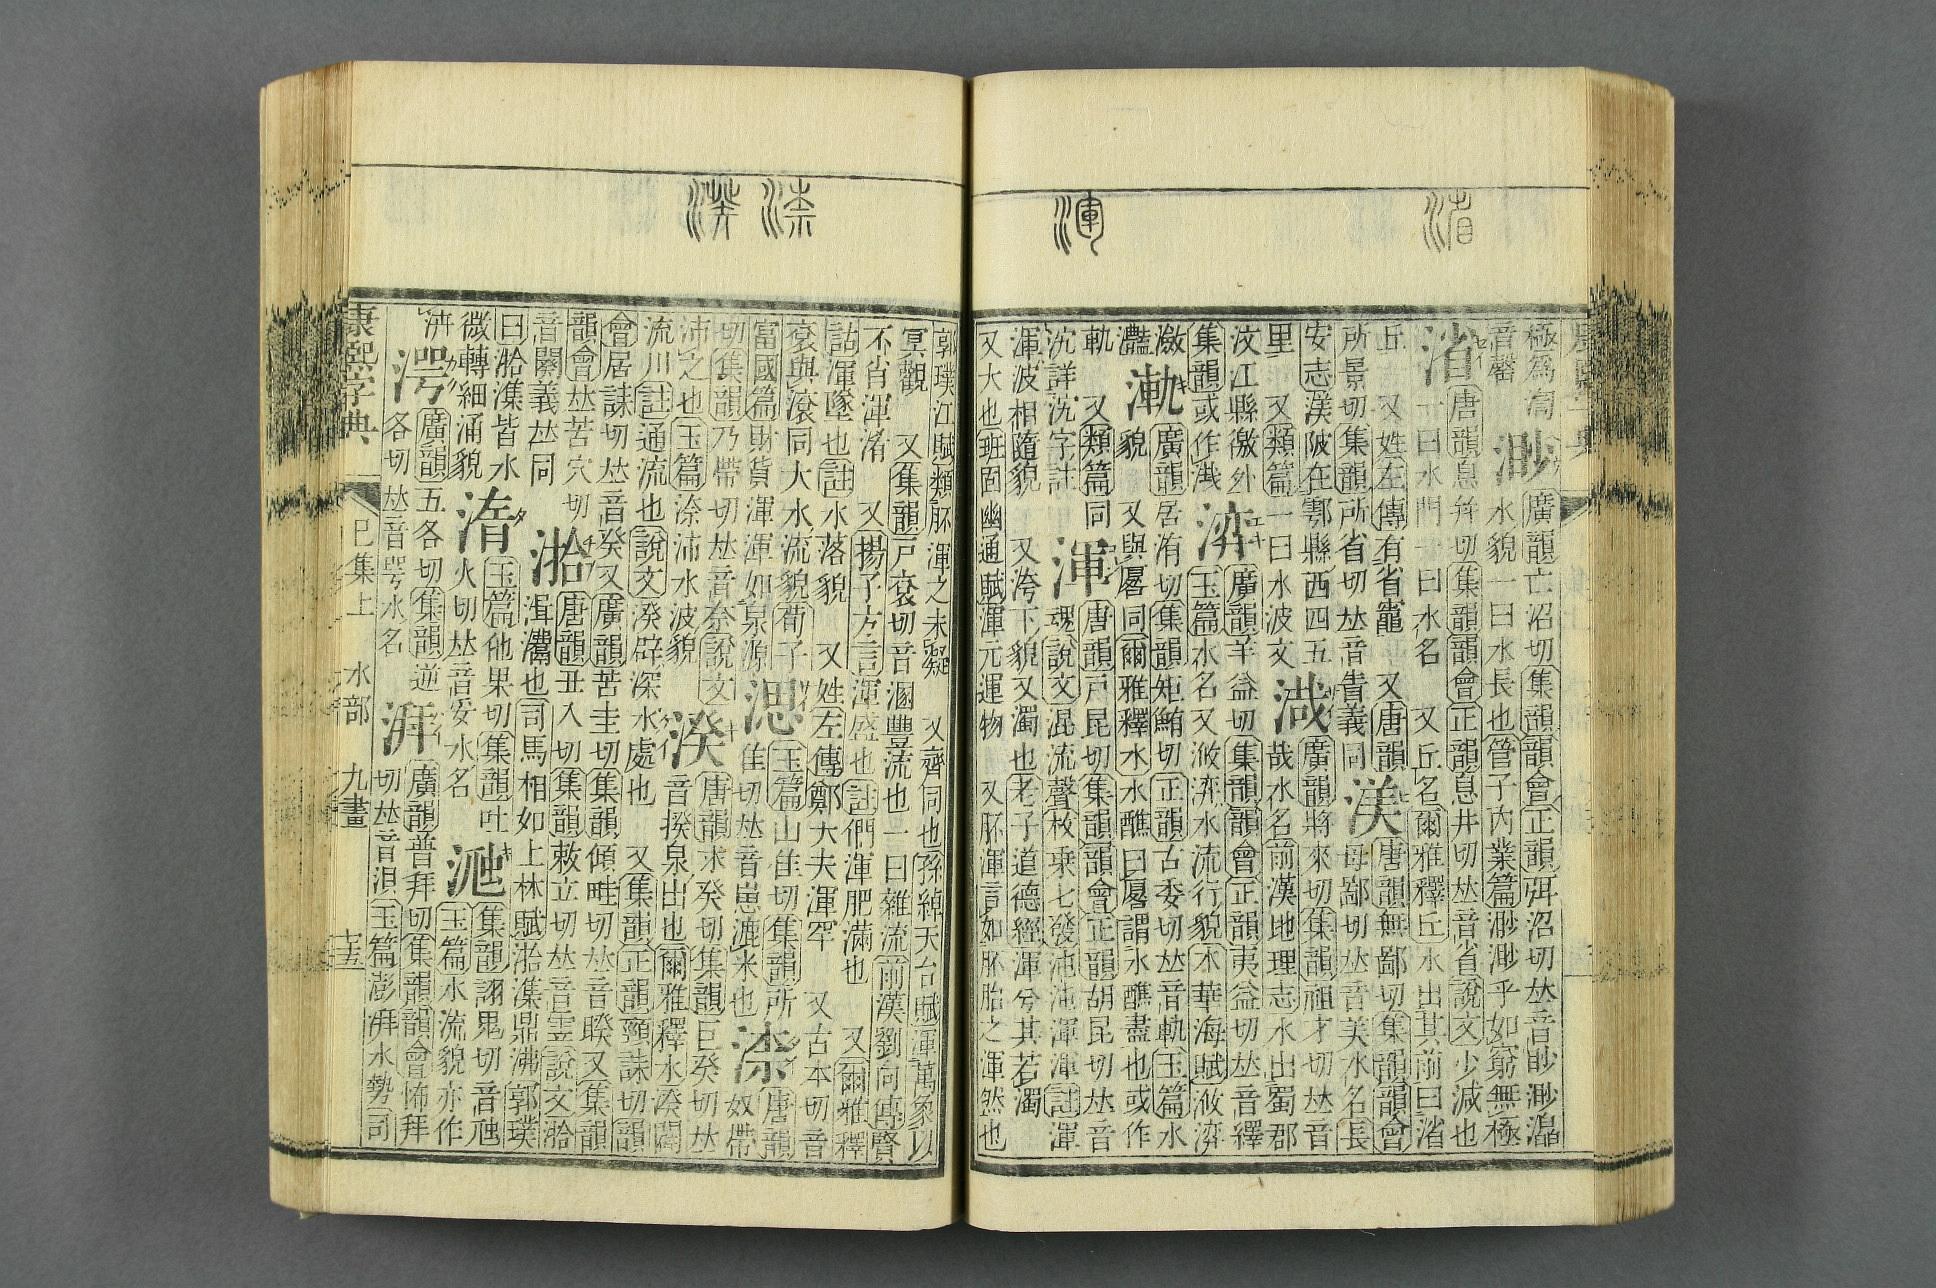 渻
渾
渿
湀
極為
渺
廣韻亡沼切集韻韻會正韻弭沼切𠀤音眇渺
音馨
水貌一曰水長也管子內業篇渺渺乎如窮無極
渻
唐韻息幷切集韻韻會正韻息井切𠀤音省說文少減也
一曰水門一曰水名 又丘名爾雅釋丘水出其前曰渻
丘 又姓左傳有省竈 又唐韻
所景切集韻所省切𠀤音眚義同
渼
唐韻無鄙切集韻韻會
母鄙切𠀤音美水名長
安志渼陂在鄠縣西四五
里 又類篇一曰水波文
渽
廣韻將來切集韻祖才切𠀤音
哉水名前漢地理志水出蜀郡
汶江縣徼外
集韻或作
㴒
廣韻羊益切集韻韻會正韻夷益切𠀤音繹
玉篇水名又浟㴒水流行貌木華海賦浟㴒
瀲
灩
漸
廣韻居洧切集韻矩鮪切正韻古委切𠀤音軌玉篇水
貌 又與厬同爾雅釋水水醮曰厬謂水醮盡也或作
軌 又類篇同
沈詳沈字註
渾
唐韻戸昆切集韻韻會正韻胡昆切𠀤音
魂說文混流聲枚乗七發沌沌渾渾註渾
渾波相隨貌 又洿下貌又濁也老子道德經渾兮其若濁
又大也班固幽通賦渾元運物 又胚渾言如胚胎之渾然也
郭璞江賦類胚渾之未凝 又齊同也孫綽天台賦渾萬象以
冥觀 又集韻戸袞切音溷豐流也一曰雜流前漢劉向傳賢
不肖渾淆 又揚子方言渾盛也註們渾肥滿也 又爾雅釋
詁渾墜也註水落貌 又姓左傳鄭大夫渾罕 又古本切音
袞與滾同大水流貌荀子
富國篇財貨渾渾如泉源
㴓
玉篇山隹切集韻所
隹切𠀤音崽漉米也
渿
唐韻
奴帶
切集韻乃帶切𠀤音奈說文
沛之也玉篇渿沛水波貌
湀
唐韻求癸切集韻巨癸切𠀤
音揆泉出也爾雅釋水湀闢
流川註通流也說文湀辟深水處也 又集韻正韻頸誄切韻
會居誄切𠀤音癸又廣韻苦圭切集韻傾畦切𠀤音睽又集韻
韻會𠀤苦穴切
音闋義𠀤同
湁
唐韻丑入切集韻敕立切𠀤音霫說文湁
湒鬻也司馬相如上林賦湁湒鼎沸郭璞
曰湁湒皆水
微轉細涌貌
湇
玉篇他果切集韻吐
火切𠀤音妥水名
集韻詡鬼切音虺
玉篇水流貌亦作
湂
廣韻五各切集韻逆
各切𠀤音咢水名
湃
廣韻普拜切集韻韻會怖拜
切𠀤音浿玉篇澎湃水勢司
康熙字典 巳集上 水部 九畫 十五